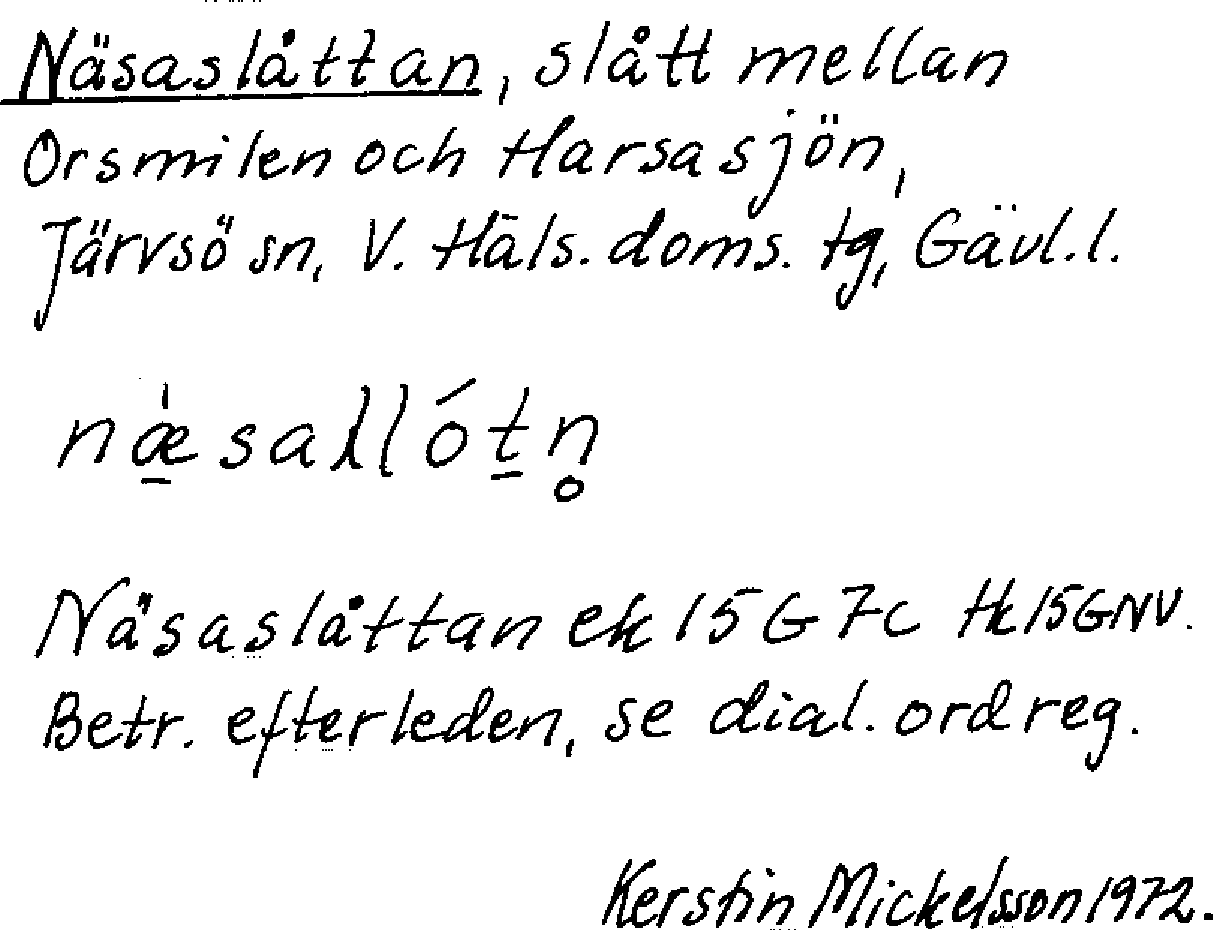 Näsaslåttan, slått mellan
Orsmilen och Harsasjön,
Järvsö sn, V. Häls. doms. tg, Gävl. l.
næ̠̀saʎlót̠n̥
Näsaslåttan ek 15 G 7c Hk 15 G NV.
Betr. efterleden, se dial. ordreg.
Kerstin Mickelsson 1972.